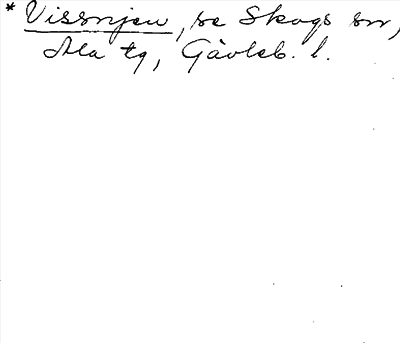 * Vissnjen, se Skogs sn,
Ala tg, Gävleb. l.